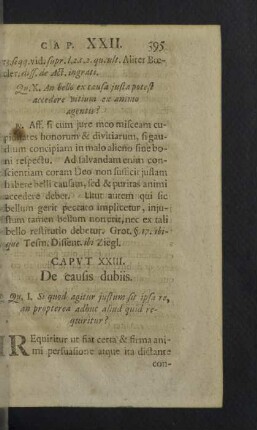 CAP. XXII. 395
re, siqq. vid. supr. l. 2. c. 2. qu. ult. Aliter Bœ-
cler. diss. de Act. ingrati.
Qu. X. An bello ex causa justa potest
accedere vitium ex animo
agentis?
R. Aff. si cum jure meo misceam cu-
piditates honorum & divitiarum, si gau-
dium concipiam in malo alieno sine bo-
ni respectu. Ad salvandam enim con-
scientiam coram Deo non sufficit justam
habere belli causam, sed & puritas animi
accedere debet. Utut autem qui sic
bellum gerit peccato implicetur, inju-
stum tamen bellum non erit, nec ex tali
bello restitutio debetur. Grot. §. 17. ibi-
que Tesm. Dissent. ibi Ziegl.
CAPUT XXIII.
De causis dubiis.
Qu. I. Si quod agitur justum sit ipsa re,
an propterea adhuc aliud quid re-
quiritur?
REquiritur ut fiat certa & firma ani-
mi persuasione atque ita dictante
con-